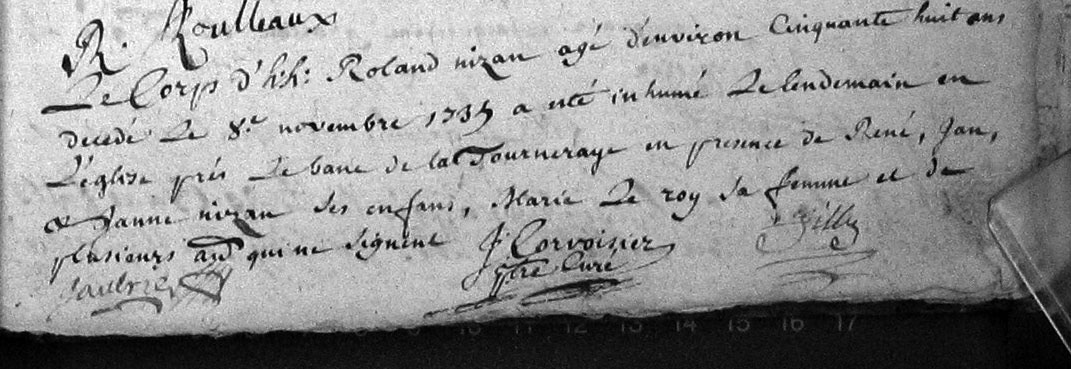 R. Roulleaux
Le Corps d'h.h: Roland nizan agé d'environ Cinquante huit ans
decedé Le 8.e novembre 1735 a eté inhumé Le lendemain en
L'églize prés Le banc de la Tourneraye en presence de René, Jan,
& Janne nizan ses enfans, Marie Le roy sa femme et de
plusieurs qui ne signent J. Corvoisier
ptre Curé